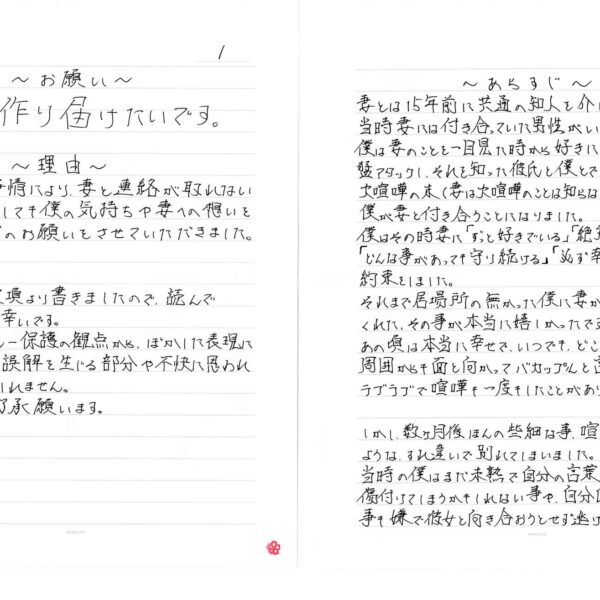 1
～お願い～
作り届けたいです。
～理由～
情により、妻と連絡が取れない
しても僕の気持ちや妻への想いを
のお願いをさせていただきました。
項より書きましたので、読んで
幸いです。
シー保護の観点から、ぼかした表現に
誤解を生じる部分や不快に思われ
しれません。
了承願います。
KOKUYO
～あらすじ～
妻とは15年前に共通の知人を介
当時妻には付き合っていた男性がい
僕は妻のことを一目見た時から好きに
猛アタックし、それを知った彼氏と僕とで
大喧嘩の末（妻は大喧嘩のことは知らな
僕が妻と付き合うことになりました。
僕はその時妻に「ずっと好きでいる」「絶
「どんな事があっても守り続ける」「必ず幸
約束をしました。
それまで居場所の無かった僕に妻が
くれた、その事が本当に嬉しかったで
あの頃は本当に幸せで、いつでも、どこ
周囲からも面と向かってバカップルと言
ラブラブで喧嘩も一度もしたことがあり
しかし、数ヶ月後ほんの些細な事、喧
ような、すれ違いで別れてしまいました。
当時の僕はまだ未熟で自分の言葉
傷付けてしまうかもしれない事や、自分
事も嫌で彼女と向き合おうとせず逃げ
KOKUYO